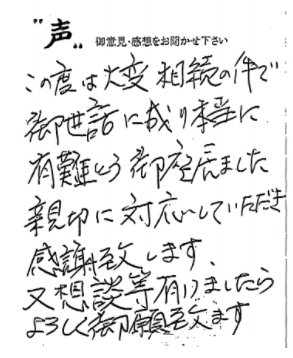 "声" 御意見・感想をお聞かせ下さい
この度は大変 相続の件で
御世話に成り本当に
有難とう御座居ました
親切に対応していただき
感謝致します、
又想談等有りましたら
よろしく御願致ます